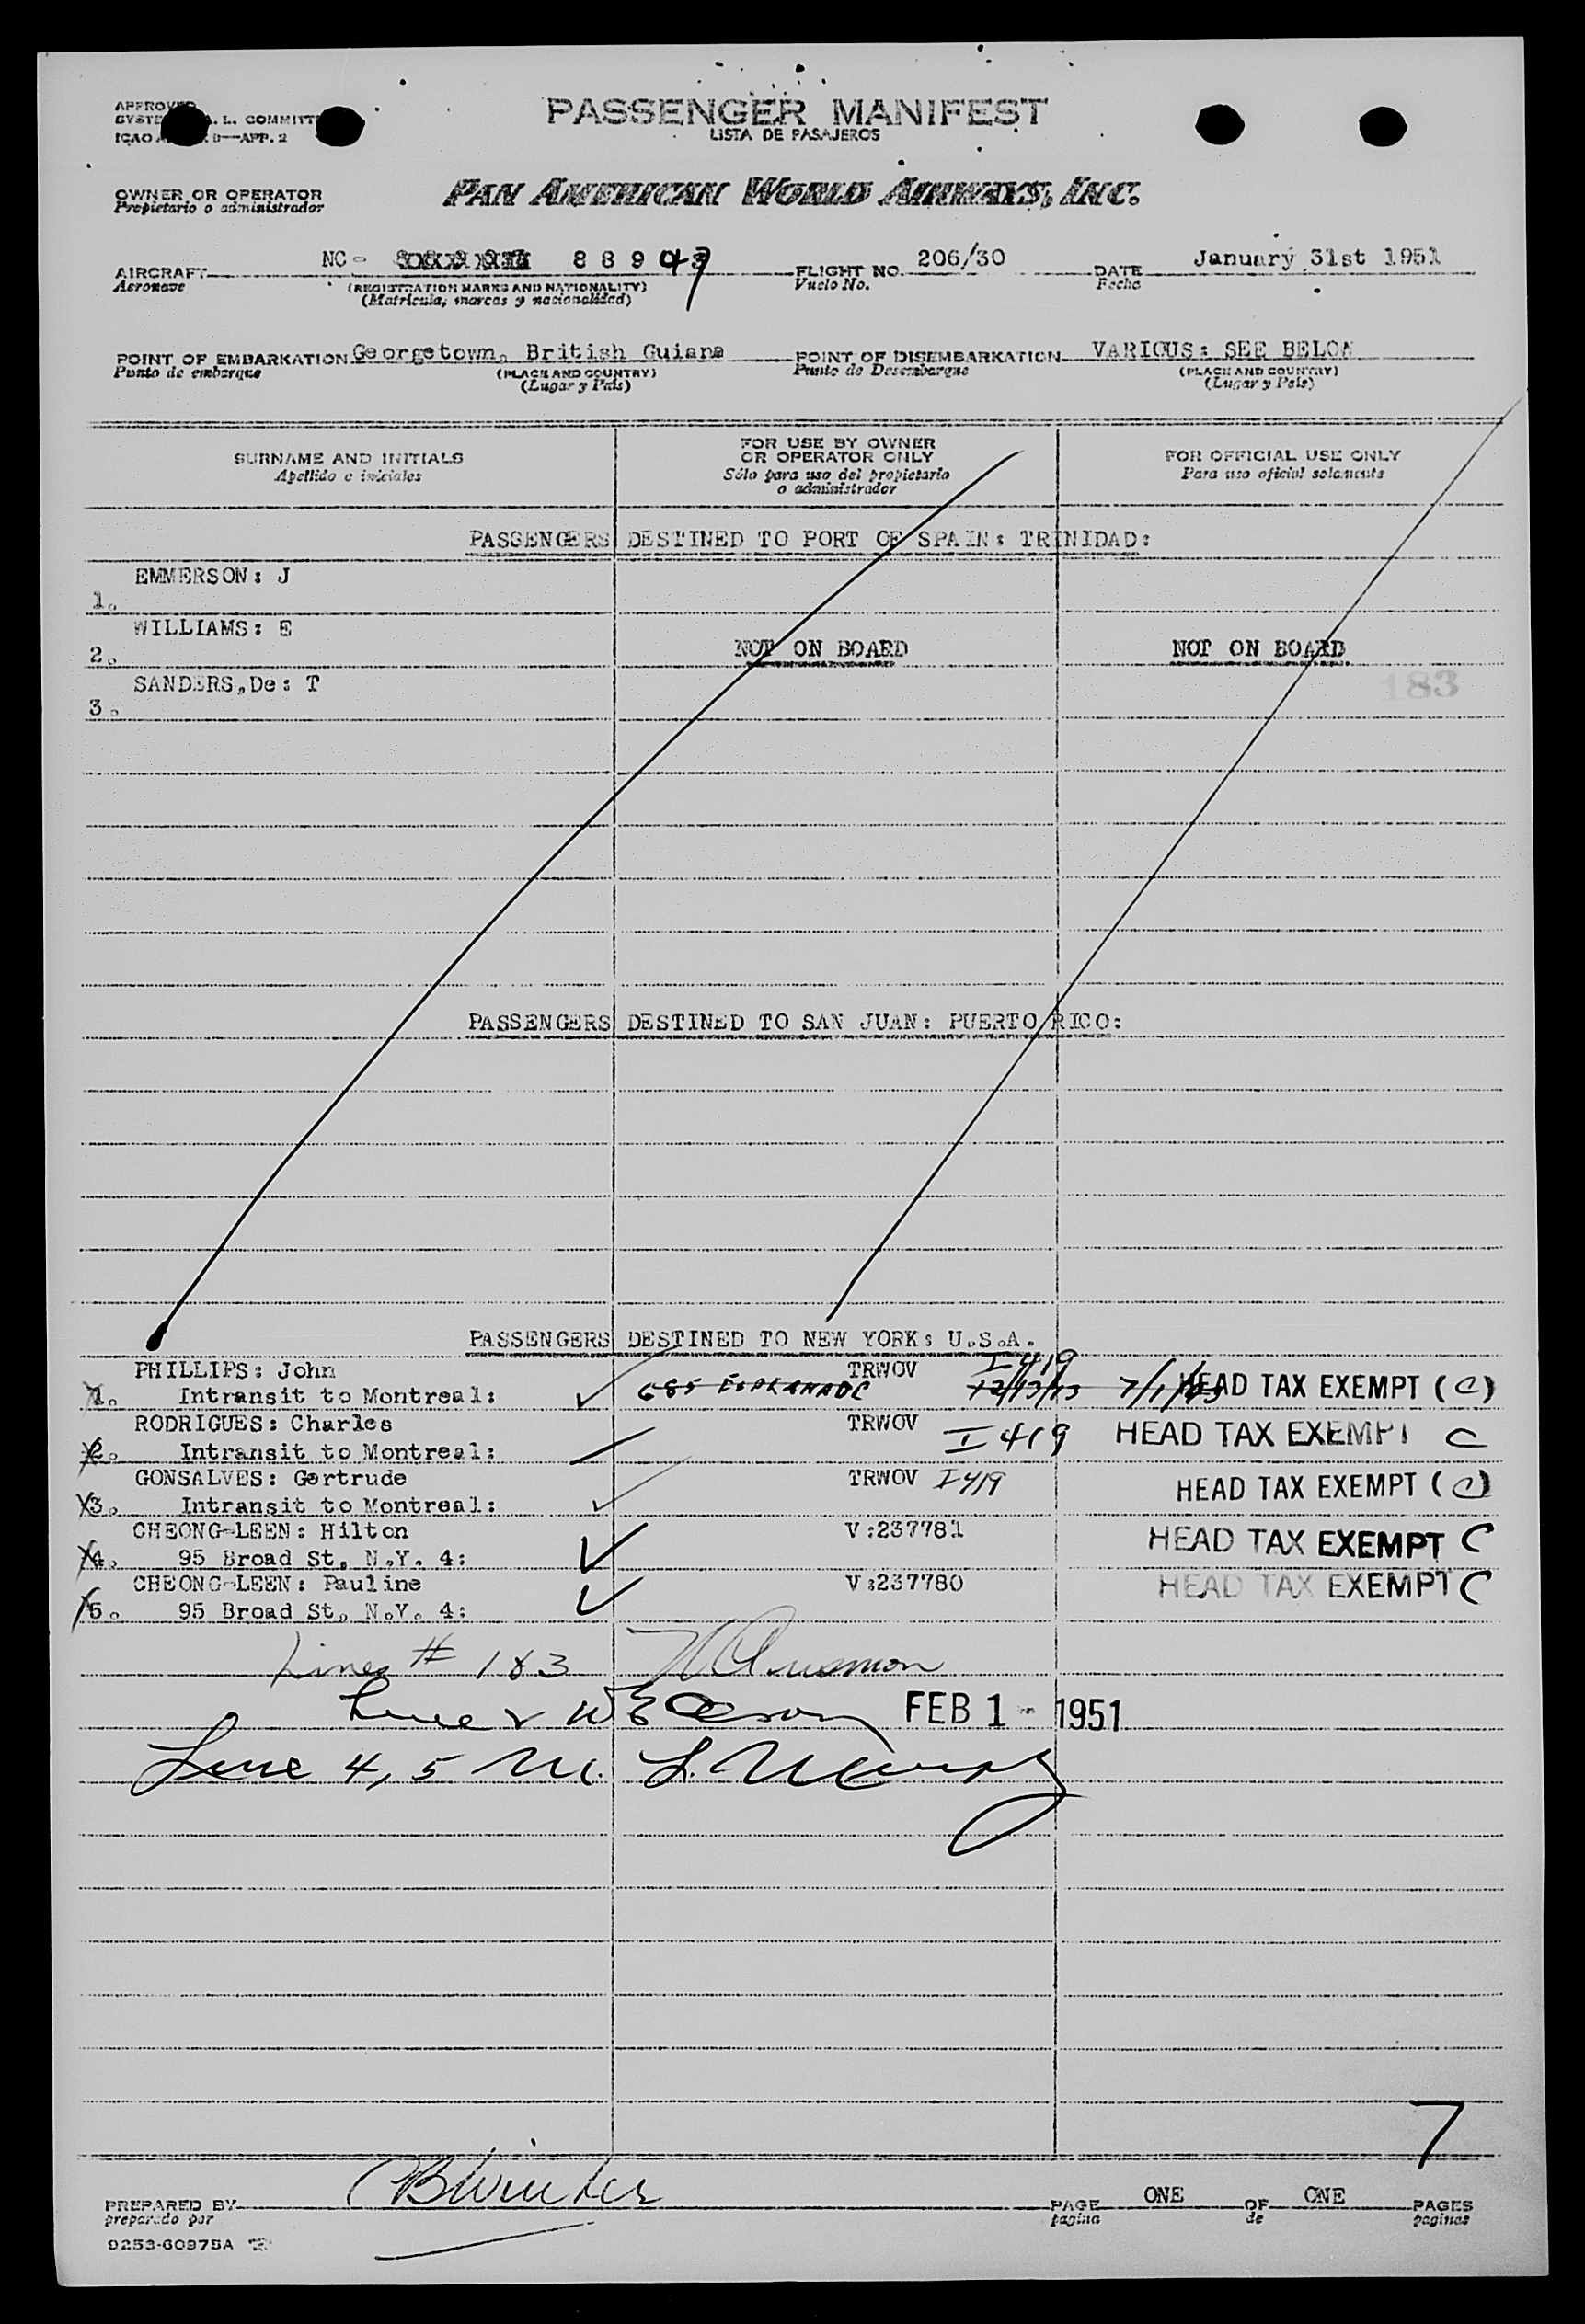 PASSENGER MANIFEST
LISTA DE PASAJEROS
ICAO APP. 2
OWNER OR OPERATOR
Propietario o administrador
PAN AMERICAN WORLD AIRWAYS, INC.
AIRCRAFT NC- 88947 FLIGHT NO. 206/30 DATE January 31st 1951
Aeronave (REGISTRATION MARKS AND NATIONALITY) Vuelo No. Fecha
(Matricula, marcas y nacionalidad)
POINT OF EMBARKATION Georgetown, British Guiana POINT OF DISEMBARKATION VARIOUS: SEE BELOW
Punto de embarque (PLACE AND COUNTRY) Punto de Desembarque (PLACE AND COUNTRY)
(Lugar y País) (Lugar y País)
SURNAME AND INITIALS
Apellido e iniciales
FOR USE BY OWNER
OR OPERATOR ONLY
Sólo para uso del propietario
o administrador
FOR OFFICIAL USE ONLY
Para uso oficial solamente
PASSENGERS DESTINED TO PORT OF SPAIN: TRINIDAD:
EMMERSON: J
1.
WILLIAMS: E
2. NOT ON BOARD NOT ON BOARD
SANDERS,De: T 183
3.
PASSENGERS DESTINED TO SAN JUAN: PUERTO RICO:
PASSENGERS DESTINED TO NEW YORK: U.S.A.
PHILLIPS: John TRWOV I 419
1. Intransit to Montreal: 685 ESPLANADE HEAD TAX EXEMPT (C)
RODRIGUES: Charles TRWOV I 419 HEAD TAX EXEMPT C
2. Intransit to Montreal:
GONSALVES: Gertrude TRWOV I 419 HEAD TAX EXEMPT (C)
3. Intransit to Montreal:
CHEONG-LEEN: Hilton V:237781 HEAD TAX EXEMPT C
4. 95 Broad St, N.Y. 4:
CHEONG-LEEN: Pauline V:237780 HEAD TAX EXEMPT C
5. 95 Broad St, N.Y. 4:
Lines # 1 & 3
Line 2 FEB 1 - 1951
Line 4, 5 M. L.
7
PREPARED BY PAGE ONE OF ONE PAGES
preparado por pagina de paginas
9253-60975A